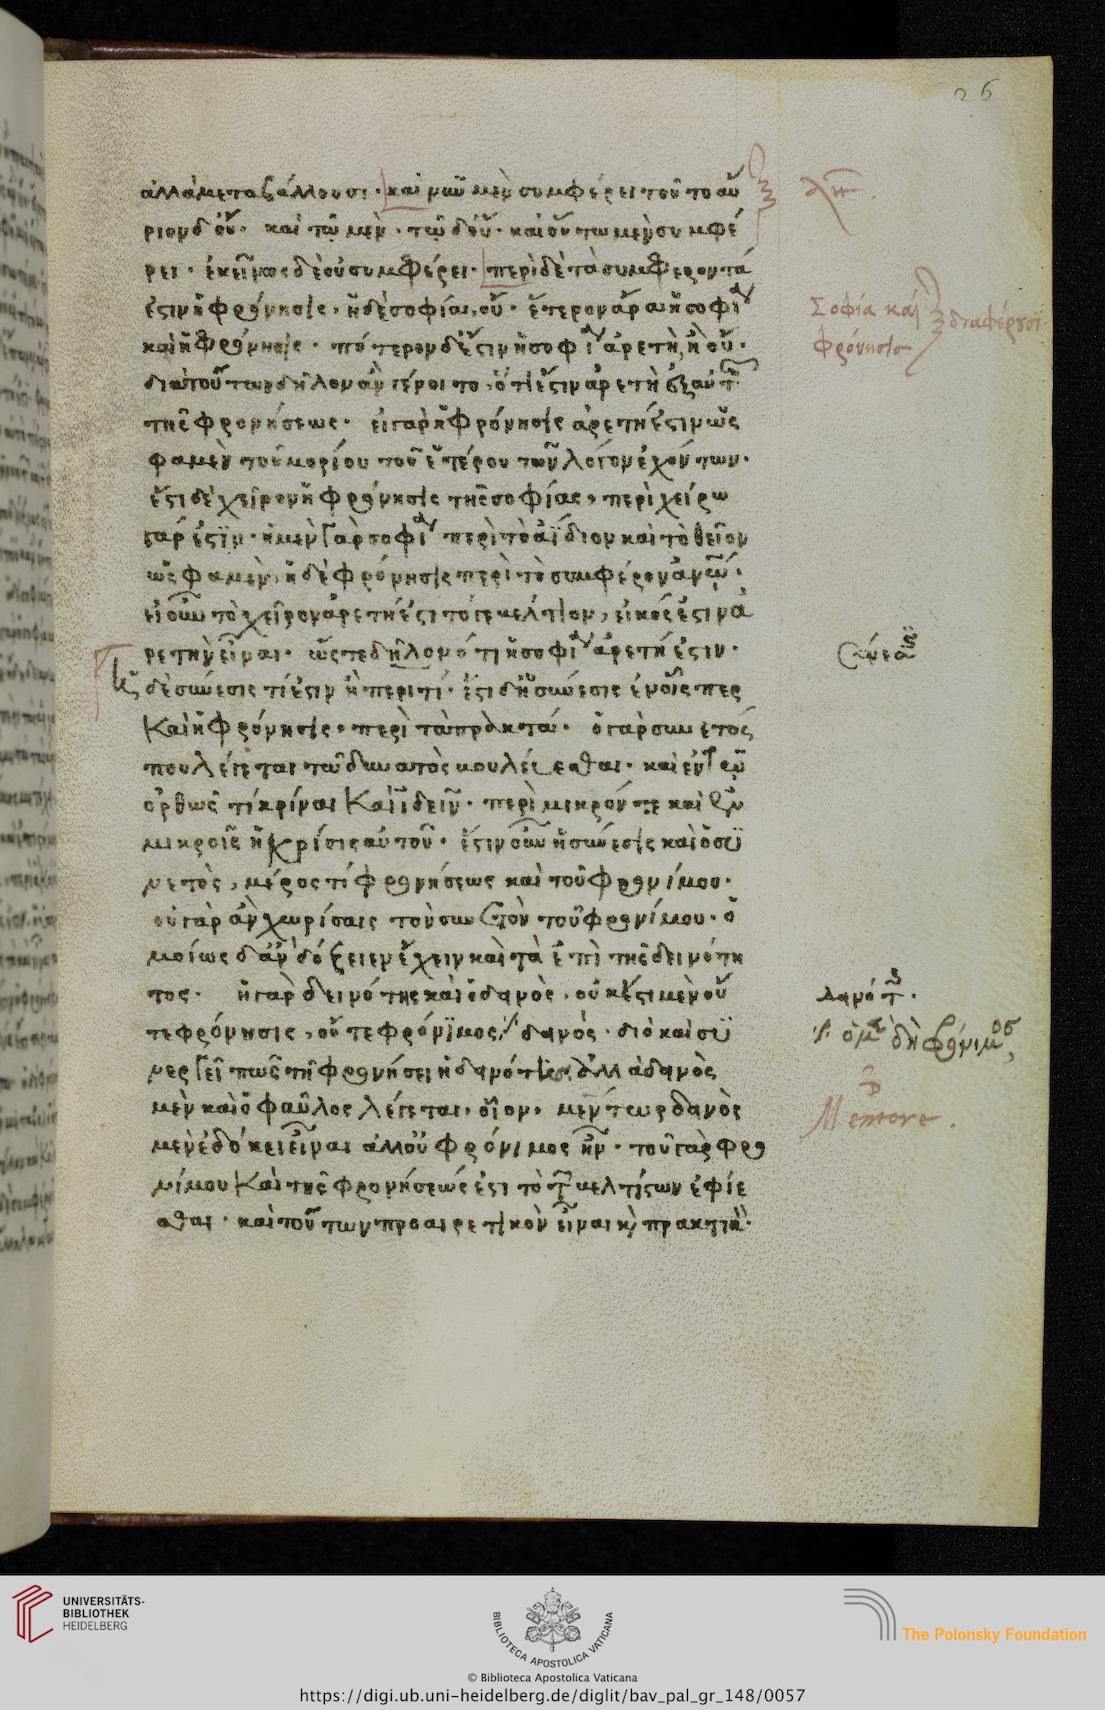 26
ἀλλὰ μεταβάλλουσι· καὶ νῦν μὲν συμφέρει τοῦτο αὔ
ριον δ' οὔ· καὶ τῷ μὲν· τῷ δ' οὔ· καὶ οὕτω μὲν συμφέ
ρει· ἐκείνως δὲ οὐ συμφέρει· περὶ δὲ τὰ συμφέροντά
ἐστιν ἡ φρόνησις, ἡ δὲ σοφία, οὔ· ἕτερον ἄρα ἡ σοφία
καὶ ἡ φρόνησις· πότερον δ' ἐστὶν ἡ σοφία ἀρετὴ, ἢ οὔ·
διὰ τούτων δῆλον ἂν γένοιτο, ὅτι ἐστὶν ἀρετὴ ἐξ αὐτῆς
τῆς φρονήσεως· εἰ γὰρ ἡ φρόνησις ἀρετή ἐστιν ὥς
φαμὲν τοῦ μορίου τοῦ ἑτέρου τῶν λόγον ἐχόντων·
ἔστι δὲ χεῖρον ἡ φρόνησις τῆς σοφίας, περὶ χείρω
γάρ ἐστιν· ἡ μὲν γὰρ σοφία περὶ τὸ ἀΐδιον καὶ τὸ θεῖον
ὥς φαμὲν, ἡ δὲ φρόνησις περὶ τὸ συμφέρον ἀνθρώπῳ·
εἰ οὖν τὸ χεῖρον ἀρετή ἐστι τό γε βέλτιον, εἰκός ἐστιν ἀ
ρετὴν εἶναι· ὥστε δῆλον ὅτι ἡ σοφία ἀρετή ἐστιν·
δὲ σύνεσις τί ἐστιν ἢ περὶ τί· ἔστι δ' ἡ σύνεσις ἐν οἷς περ
καὶ ἡ φρόνησις, περὶ τὰ πρακτά· ὁ γὰρ συνετός
που λέγεται τῷ δυνατὸς βουλεύεσθαι· καὶ ἐν τῷ
ὀρθῶς τι κρῖναι καὶ ἰδεῖν· περὶ μικρόν τε καὶ ἐν
μικροῖς ἡ κρίσις αὐτοῦ· ἔστιν οὖν ἡ σύνεσις καὶ ὁ συ
νετὸς, μέρος τι φρονήσεως καὶ τοῦ φρονίμου·
οὐ γὰρ ἂν χωρίσαις τὸν συνετὸν τοῦ φρονίμου· ὁ
μοίως δ' ἂν δόξειεν ἔχειν καὶ τὰ ἐπὶ τῆς δεινότη
τος· ἡ γὰρ δεινότης καὶ ὁ δανὸς, οὐκ ἔστι μὲν οὔ
τε φρόνησις, οὔτε φρόνιμος / δανός· διὸ καὶ συ
νεργεῖ πως τῇ φρονήσει ἡ δανότης, ἀλλὰ δανὸς
μὲν καὶ ὁ φαῦλος λέγεται, οἷον, μέντωρ δανὸς
μὲν ἐδόκει εἶναι ἀλλ' οὐ φρόνιμος ἦν· τοῦ γὰρ φρο
νίμου καὶ τῆς φρονήσεώς ἐστι τὸ τῶν βελτίστων ἐφίε
σθαι· καὶ τούτων προαιρετικὸν εἶναι καὶ πρακτικὸν·
Σοφία καὶ
φρόνησις
διαφέρουσι
δανότης·
ὁ μέντοι δὴ φρόνιμος
Mentore.
UNIVERSITÄTS-
BIBLIOTHEK
HEIDELBERG
BIBLIOTECA APOSTOLICA VATICANA
The Polonsky Foundation
© Biblioteca Apostolica Vaticana
https://digi.ub.uni-heidelberg.de/diglit/bav_pal_gr_148/0057